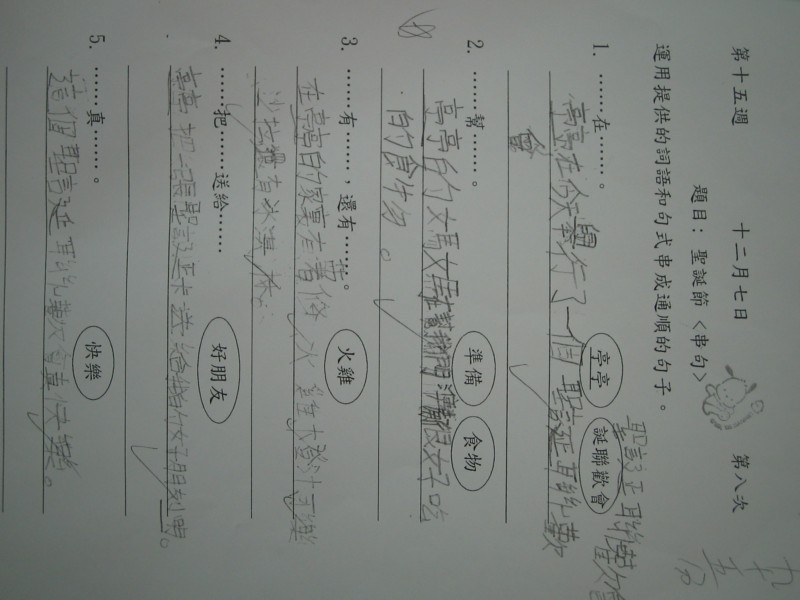 第十五週 十二月七日 第八次
九十五分
題目：聖誕節〈串句〉
運用提供的詞語和句式串成通順的句子。
聖誕聯歡會
1. ……在……。 亭亭 誕聯歡會
亭亭在今天舉行了一個聖誕聯歡
會
2. ……幫……。 準備 食物
亭亭的媽媽幫我們準備很好吃
的食物。
3. ……有……，還有……。 火雞
在亭亭的家裏有
沙拉還有冰淇淋。
4. ……把……送給…… 好朋友
亭亭把一張聖誕卡送給她的好朋友。
5. ……真……。 快樂
這個聖誕聯歡會真快樂。